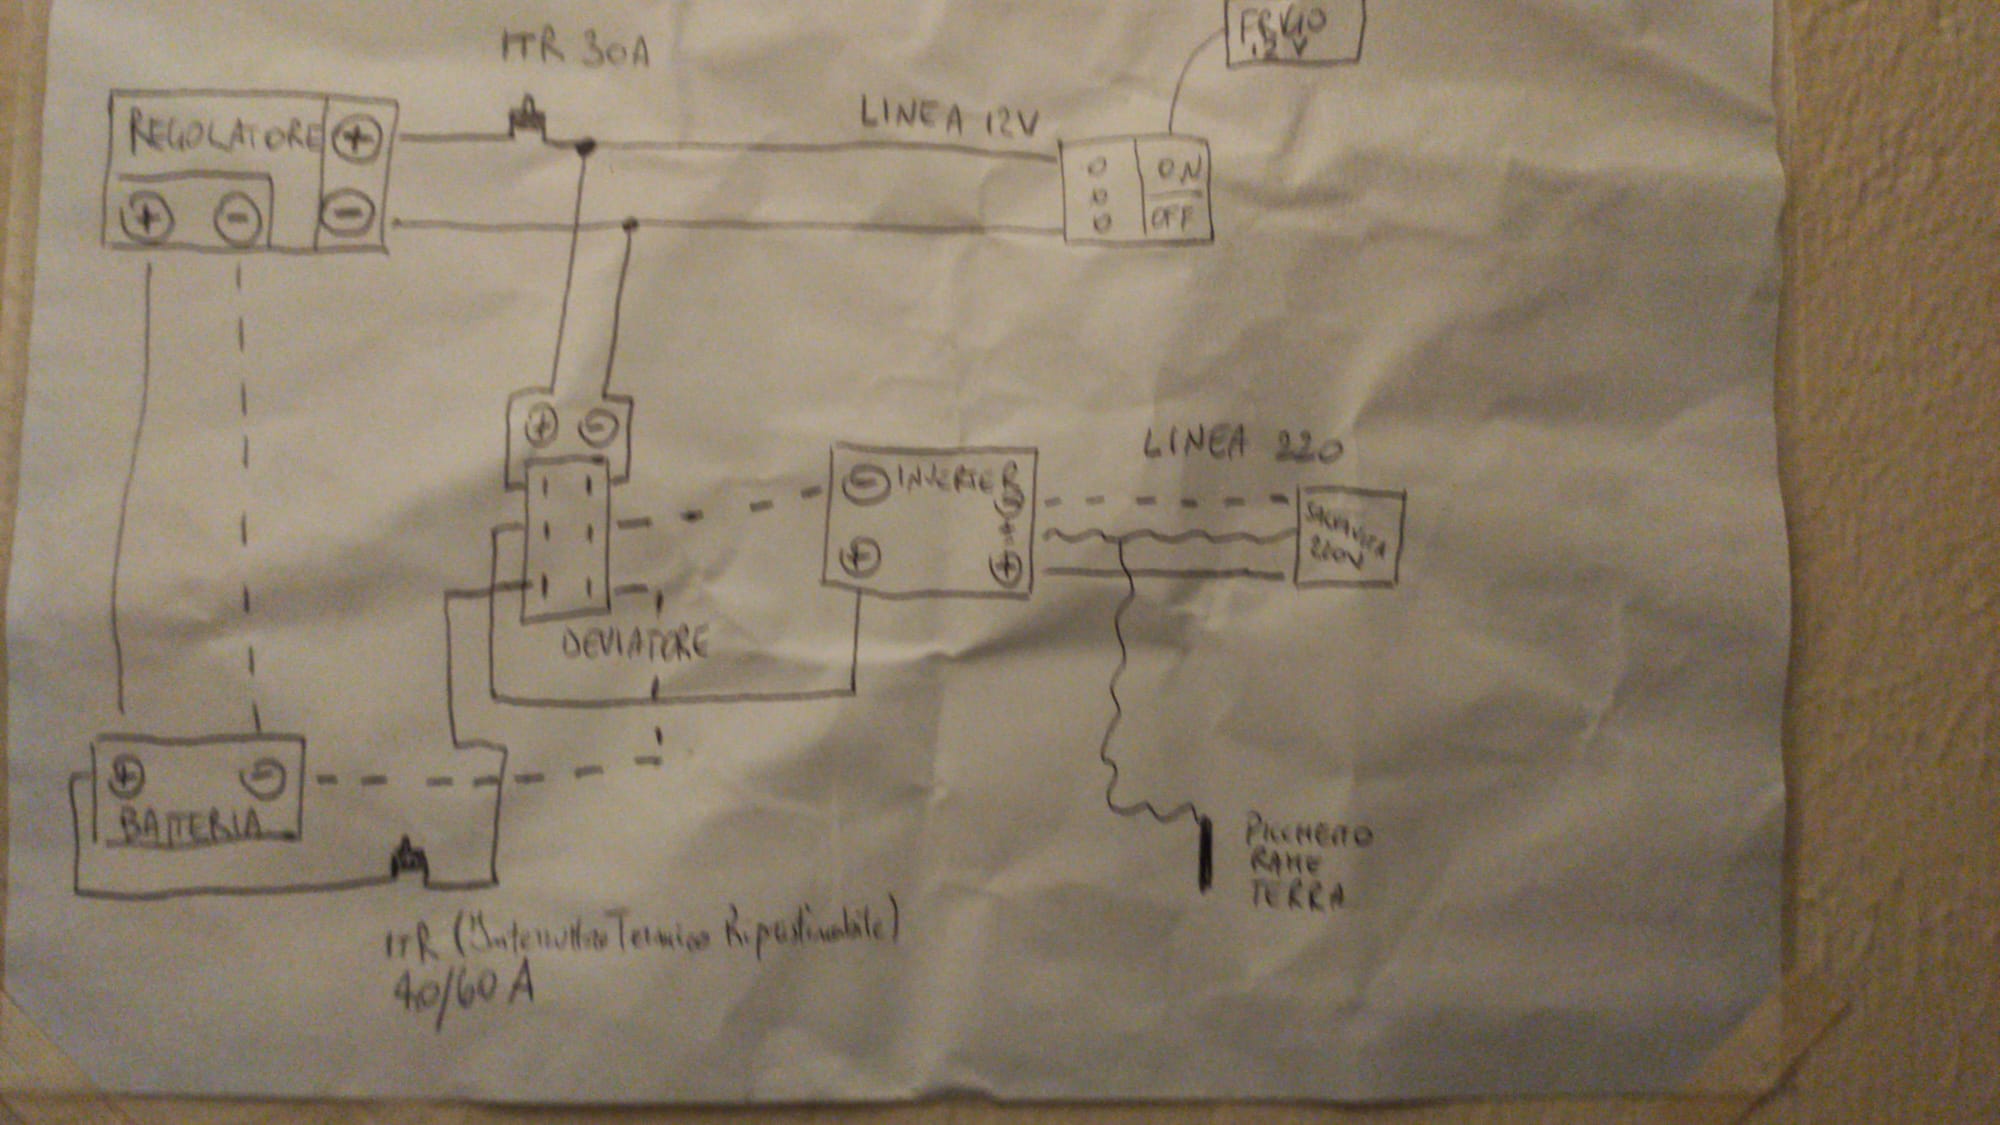 ITR 30A
FRIGO
12 V
REGOLATORE
+
-
+
-
LINEA 12V
O
O
O
ON
OFF
+
-
DEVIATORE
-
INVERTER
+
+
LINEA 220
SALVAVITA
220V
+
-
BATTERIA
ITR (Interruttore Termico Ripristinabile)
40/60 A
PICCHETTO
RAME
TERRA